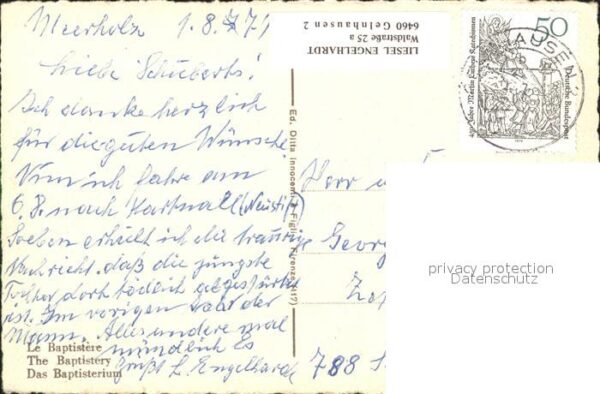 Meerholz 1.8.79
Liebe Schuberts!
Ich danke herzlich
für die guten Wünsche.
Nun ich fahre am
6.8. nach
Soeben erhielt ich die traurige
Nachricht, daß die jüngste
Tochter dort tödlich abgestürzt
ist. Im vorigen Jahr der
Mann. Alles andere mal
mündlich Es
grüßt L. Engelhardt
Le Baptistère
The Baptistery
Das Baptisterium
Ed. Ditta Innocenti & Figli - Firenze (417)
LIESEL ENGELHARDT
Waldstraße 25 a
6460 Gelnhausen 2
50
450 Jahre Martin Luthers Katechismus
Deutsche Bundespost
1979
HAUSEN
Herr u.
Georg
788
privacy protection
Datenschutz